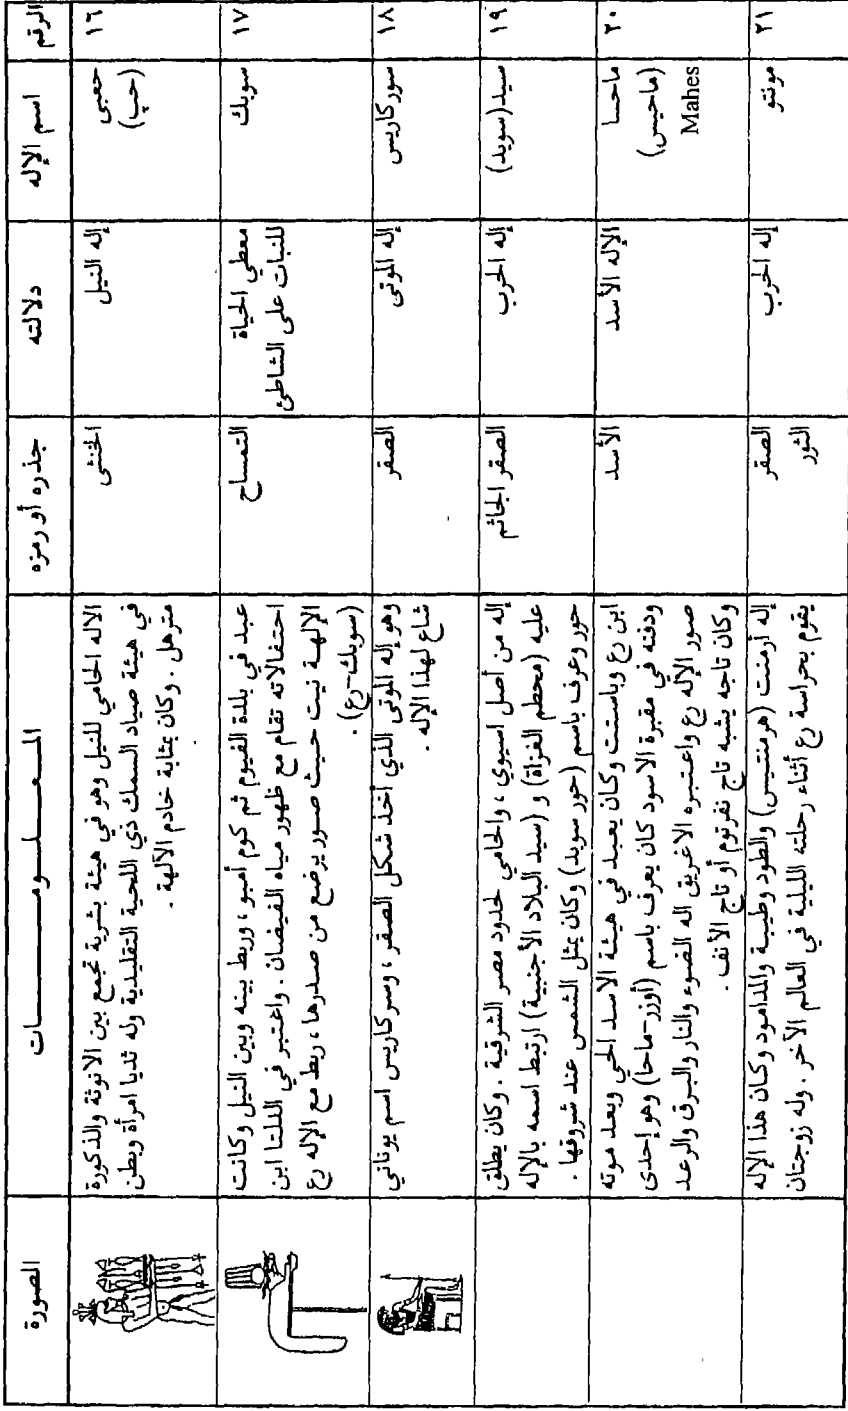 الرقم
اسم الإله
دلالته
جذره أو رمزه
المـعـلـومـــات
الصورة
١٦
حعبى
(حپ)
إله النيل
الخنثى
الاله الحامي للنيل وهو في هيئة بشرية تجمع بين الانوثة والذكورة
في هيئة صياد السمك ذي اللحية التقليدية وله ثديا امرأة وبطن
مترهل . وكان بمثابة خادم الآلهة .
١٧
سوبك
معطي الحياة
للنبات على الشاطئ
التمساح
عبد في بلدة الفيوم ثم كوم أمبو ، وربط بينه وبين النيل وكانت
احتفالاته تقام مع ظهور مياه الفيضان . واعتبر في الدلتا ابن
الإلهـة نيت حيث صور يرضع من صدرها ، ربط مع الإله رع
(سوبك-رع) .
١٨
سوركاريس
إله الموتى
الصقر
وهو إله الموتى الذي أخذ شكل الصقر ، وسركاريس اسم يوناني
شاع لهذا الإله .
١٩
سبد (سوبد)
إله الحرب
الصقر الجاثم
إله من أصل اسيوي ، والحامي لحدود مصر الشرقية . وكان يطلق
عليه (محطم الغزاة) و (سيد البلاد الأجنبية) ارتبط اسمه بالإله
حور وعرف باسم (حور سوبد) وكان يمثل الشمس عند شروقها .
٢٠
ماحسا
(ماحيس)
Mahes
الإله الأسد
الأسد
ابن رع وباستت وكان يعبد في هيئة الاسد الحي وبعد موته
ودفنه في مقبرة الاسود كان يعرف باسم (أوزر-ماحا) وهو إحدى
صور الإله رع واعتبره الاغريق اله الضوء والنار والبرق والرعد
وكان تاجه يشبه تاج نفرتوم أو تاج الأتف .
٢١
مونتو
إله الحرب
الصقر
الثور
إله أرمنت (هرمنتيس) والطود وطيبة والمدامود وكان هذا الإله
يقوم بحراسة رع أثناء رحلته الليلية في العالم الآخر . وله زوجتان